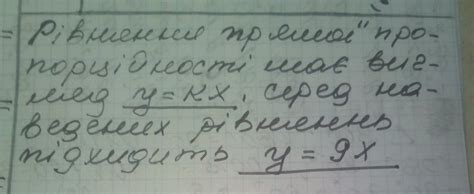 Рівняння прямої про-
порційності має виг-
ляд у=кх, серед на-
ведених рівнянь
підходить у = 9х